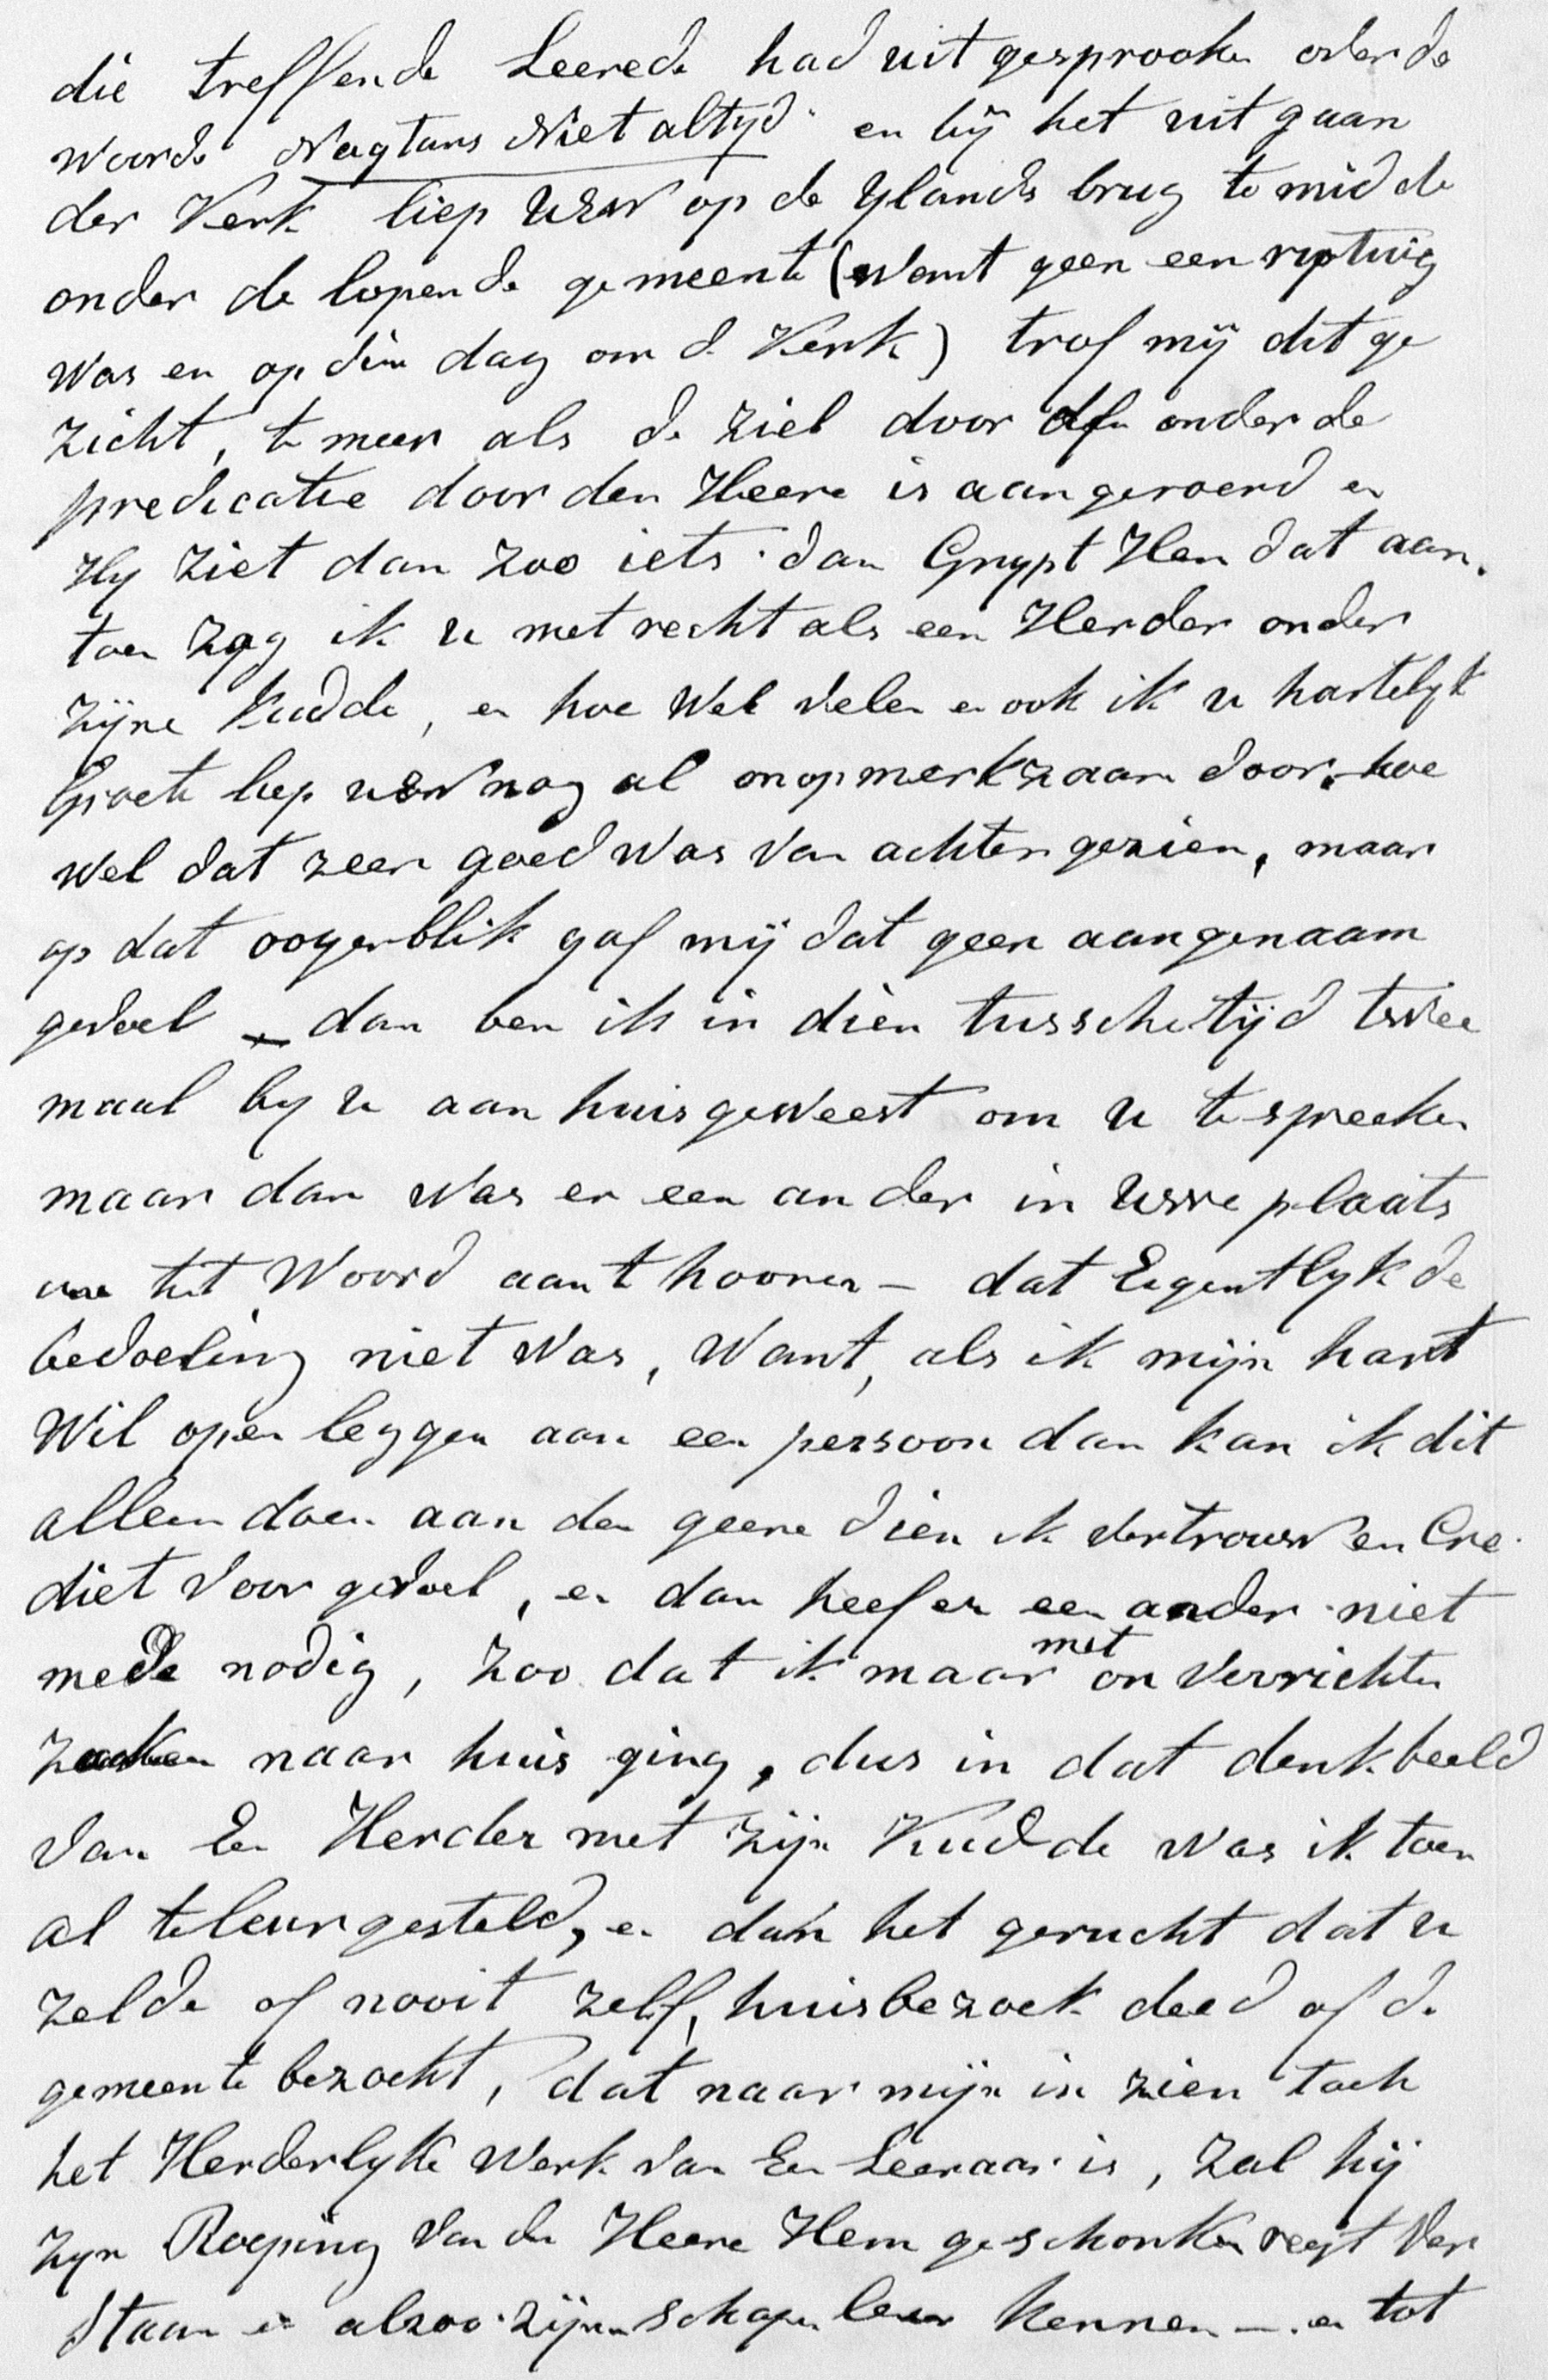 die treffende Leerede had uit gesprooken over de
woorde Nogtans Niet altyd" en bij het uit gaan
der Kerk liep UEW op de Ylands brug te midde
onder de lopende gemeente (want geen een ryptuig
was en op dien dag om de Kerk) trof mij dit ge
zicht, te meer als de ziel door of onder de
predicatie door den Heere is aangeroerd en
Hy ziet dan zoo iets dan Grypt Hen dat aan.
toen zag ik u met recht als een Herder onder
zijne Kudde, en hoe wel velen en ook ik u hartelyk
Groete liep uew nog al onopmerkzaam door. hoe
wel dat zeer goed was van achter gezien, maar
op dat oogenblik gaf mij dat geen aangenaam
gevoel – dan ben ik in dien tusschetijd twee
maal by u aan huis geweest om u te spreeken
maar dan was er een ander in uwe plaats
om het Woord aan t hooren – dat Eigentlyk de
bedoeling niet was, Want, als ik mijn hart
Wil open leggen aan een persoon dan kan ik dit
alleen doen aan den geene dien ik vertrouw en Cre
diet voor gevoel, en dan heef er een ander niet
mede nodig, zoo dat ik maar met on verrichte
zaaken naar huis ging, dus in dat denkbeeld
van Een Herder met zijn Kudde was ik toen
al te leur gesteld, en dan het gerucht dat u
zelde of nooit zelf, huisbezoek deed of de
gemeente bezocht, dat naar mijn in zien toch
het Herderlyke Werk van Een Leeraar is, zal hij
zyn Roeping van de Heere Hem geschonken regt ver
staan en alzoo zijne schapen leer kennen – en tot